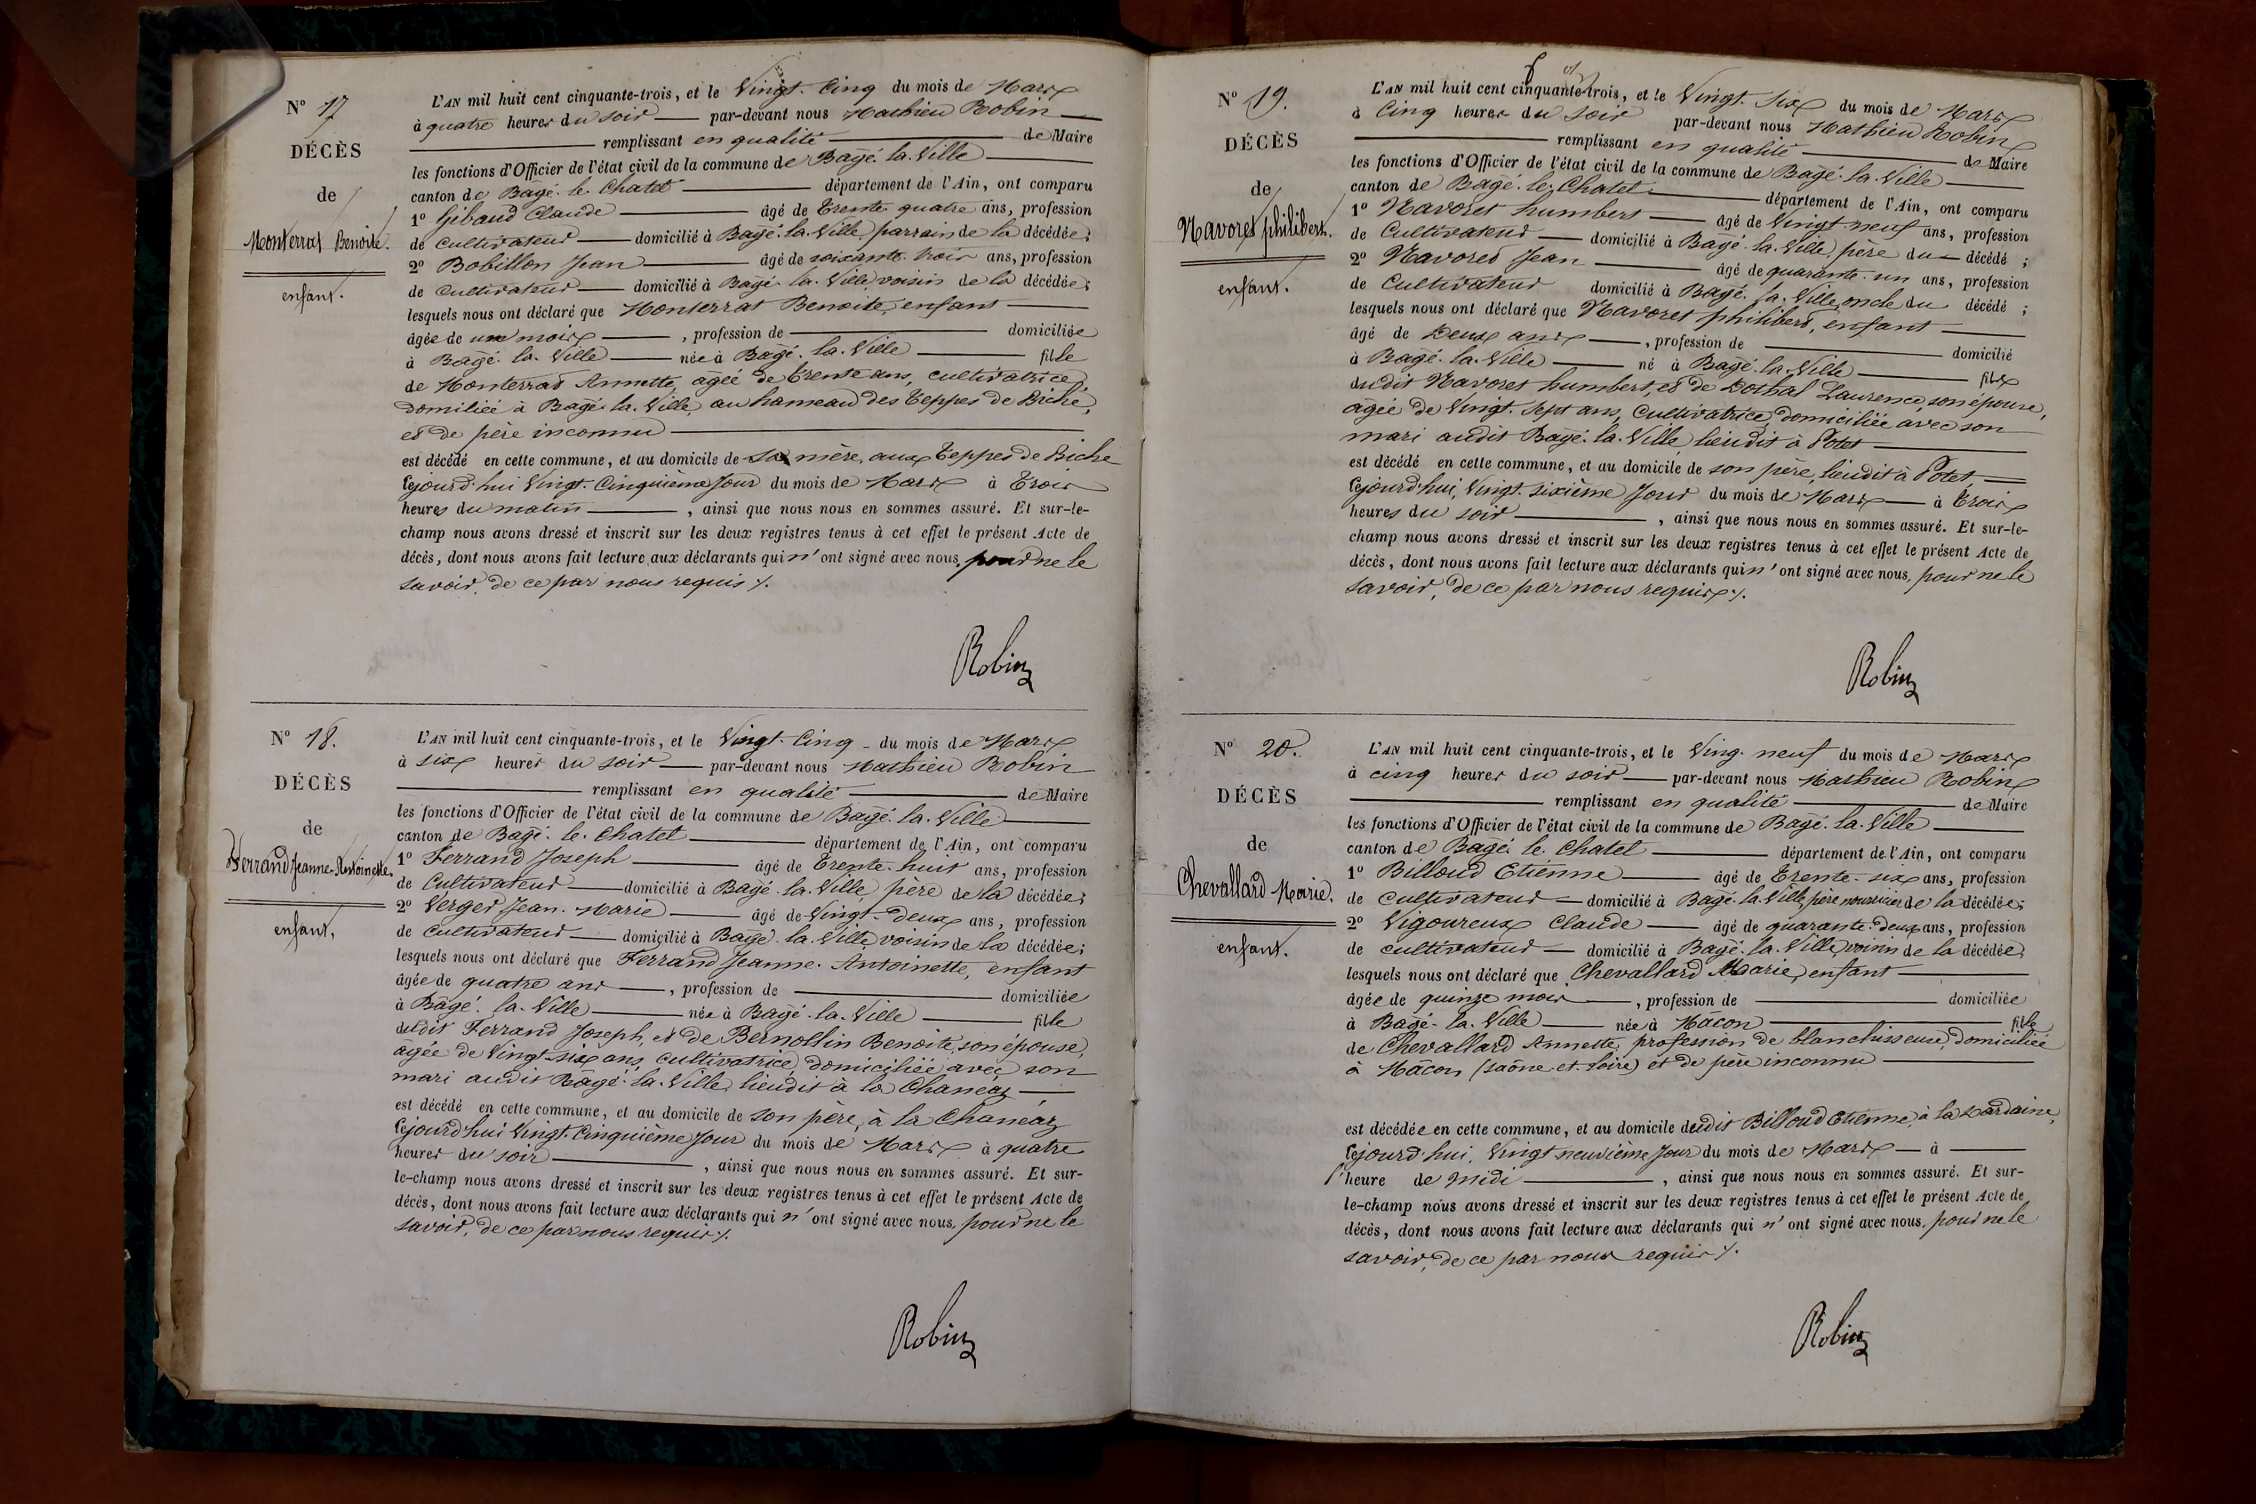 N° 17
DÉCÈS
de
Monterrat Benoite.
enfant.
L'AN mil huit cent cinquante-trois, et le Vingt-Cinq du mois de Mars
à quatre heures du soir par-devant nous Mathieu Robin
remplissant en qualité de Maire
les fonctions d'Officier de l'état civil de la commune de Bagé-la-Ville
canton de Bagé-le-Chatel département de l'Ain, ont comparu
1° Gibaud Claude âgé de Trente-quatre ans, profession
de cultivateur domicilié à Bagé-la-Ville, parrain de la décédée;
2° Bobillon Jean âgé de soixante-trois ans, profession
de Cultivateur domicilié à Bagé-la-Ville voisin de la décédée;
lesquels nous ont déclaré que Monterrat Benoite, enfant
âgée de un mois, profession de domiciliée
à Bagé-la-Ville née à Bagé-la-Ville fille
de Monterrat Annette, âgée de Trente ans, cultivatrice
domiliée à Bagé-la-Ville, au hameau des Teppes de Biche,
et de père inconnu
est décédé en cette commune, et au domicile de sa mère, aux Teppes de Biche
Cejourd'hui Vingt-Cinquième Jour du mois de Mars à Trois
heures du matin, ainsi que nous nous en sommes assuré. Et sur-le-
champ nous avons dressé et inscrit sur les deux registres tenus à cet effet le présent Acte de
décès, dont nous avons fait lecture aux déclarants qui n'ont signé avec nous, pour ne le
savoir, de ce par nous requis ./.
Robin
N° 18.
DÉCÈS
de
Ferrand Jeanne-Antoinette,
enfant,
L'AN mil huit cent cinquante-trois, et le Vingt-Cinq du mois de Mars
à six heures du soir par-devant nous Mathieu Robin
remplissant en qualité de Maire
les fonctions d'Officier de l'état civil de la commune de Bagé-la-Ville
canton de Bagé-le-Chatel département de l'Ain, ont comparu
1° Ferrand Joseph âgé de Trente-huit ans, profession
de Cultivateur domicilié à Bagé-la-Ville, père de la décédée;
2° Verger Jean-Marie âgé de Vingt-deux ans, profession
de Cultivateur domicilié à Bagé-la-Ville voisin de la décédée;
lesquels nous ont déclaré que Ferrand Jeanne-Antoinette, enfant
âgée de quatre ans, profession de domiciliée
à Bagé-la-Ville née à Bagé-la-Ville fille
dudit Ferrand Joseph, et de Bernollin Benoite, son épouse,
âgée de Vingt-six ans, cultivatrice, domiciliée avec son
mari audit Bâgé-la-Ville, lieudit à la Chanéaz
est décédé en cette commune, et au domicile de son père, à la Chanéaz
Cejourd'hui Vingt-Cinquième Jour du mois de Mars à quatre
heures du soir, ainsi que nous nous en sommes assuré. Et sur-
le-champ nous avons dressé et inscrit sur les deux registres tenus à cet effet le présent Acte de
décès, dont nous avons fait lecture aux déclarants qui n'ont signé avec nous, pour ne le
savoir, de ce par nous requis ./.
Robin
N° 19.
DÉCÈS
de
Navoret philibert.
enfant.
L'AN mil huit cent cinquante-trois, et le Vingt-six du mois de Mars
à Cinq heures du soir par-devant nous Mathieu Robin
remplissant en qualité de Maire
les fonctions d'Officier de l'état civil de la commune de Bagé-la-Ville
canton de Bagé-le-Chatel département de l'Ain, ont comparu
1° Navoret humbert âgé de Vingt-neuf ans, profession
de Cultivateur domicilié à Bagé-la-Ville, père du décédé;
2° Navoret Jean âgé de quarante-un ans, profession
de Cultivateur domicilié à Bagé-la-Ville, oncle du décédé;
lesquels nous ont déclaré que Navoret philibert, enfant
âgé de Deux ans, profession de domicilié
à Bagé-la-Ville né à Bagé-la-Ville fils
dudit Navoret humbert, et de Dothal Laurence, son épouse,
âgée de Vingt-sept ans, Cultivatrice, domiciliée avec son
mari audit Bagé-la-Ville, lieudit à Potet
est décédé en cette commune, et au domicile de son père, lieudit à Potet,
Cejourd'hui, Vingt-sixième Jour du mois de Mars à Trois
heures du soir, ainsi que nous nous en sommes assuré. Et sur-le-
champ nous avons dressé et inscrit sur les deux registres tenus à cet effet le présent Acte de
décès, dont nous avons fait lecture aux déclarants qui n'ont signé avec nous, pour ne le
savoir, de ce par nous requis ./.
Robin
N° 20.
DÉCÈS
de
Chevallard Marie.
enfant.
L'AN mil huit cent cinquante-trois, et le Ving-neuf du mois de Mars
à cinq heures du soir par-devant nous Mathieu Robin
remplissant en qualité de Maire
les fonctions d'Officier de l'état civil de la commune de Bagé-la-Ville
canton de Bagé-le-Chatel département de l'Ain, ont comparu
1° Billoud Etienne âgé de Trente-six ans, profession
de cultivateur domicilié à Bagé-la-Ville, père nourricier de la décédée;
2° Vigoureux Claude âgé de quarante-deux ans, profession
de cultivateur domicilié à Bagé-la-Ville, voisin de la décédée;
lesquels nous ont déclaré que Chevallard Marie, enfant
âgée de quinze mois, profession de domiciliée
à Bagé-la-Ville née à Mâcon fille
de Chevallard Annette, profession de blanchisseuse, domiciliée
à Mâcon (saône-et-loire) et de père inconnu
est décédée en cette commune, et au domicile dudit Billoud Etienne, à la
Cejourd'hui, Vingt-neuvième Jour du mois de Mars à
l'heure de midi, ainsi que nous nous en sommes assuré. Et sur-
le-champ nous avons dressé et inscrit sur les deux registres tenus à cet effet le présent Acte de
décès, dont nous avons fait lecture aux déclarants qui n'ont signé avec nous, pour ne le
savoir, de ce par nous requis ./.
Robin